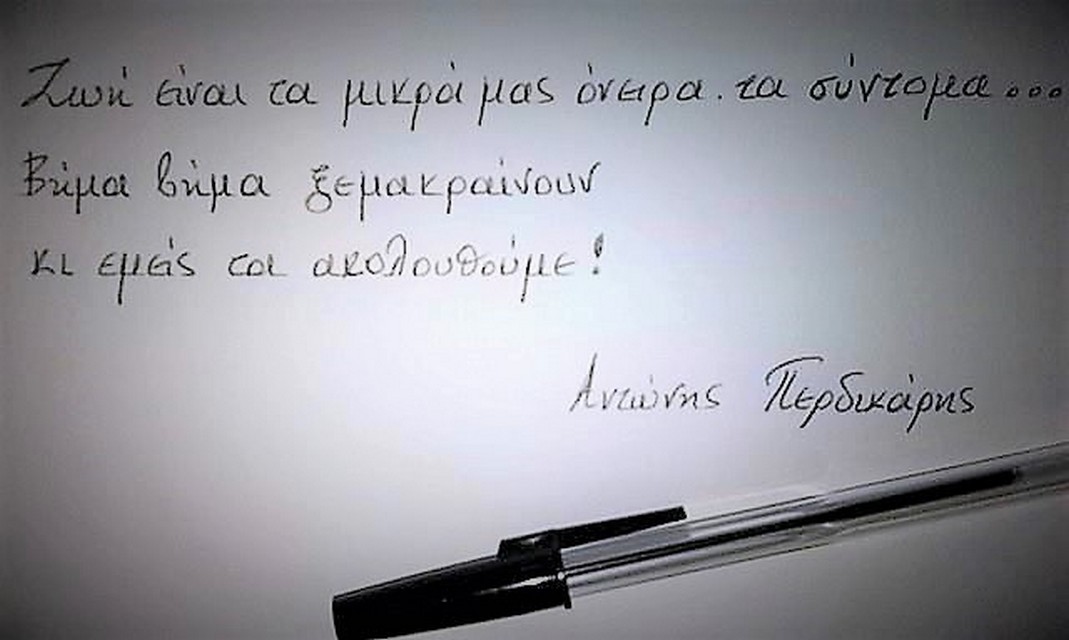 Ζωή είναι τα μικρά μας όνειρα. τα σύντομα...
Βήμα βήμα ξεμακραίνουν
κι εμείς τα ακολουθούμε!
Αντώνης Περδικάρης